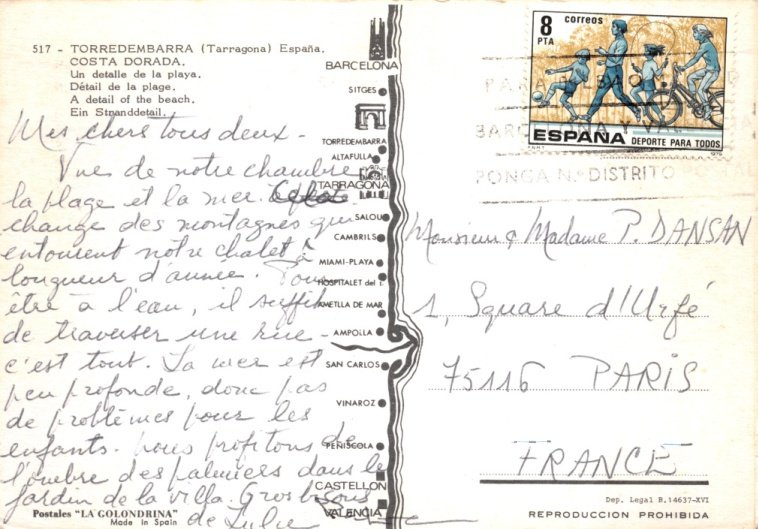 517 - TORREDEMBARRA (Tarragona) España.
COSTA DORADA.
Un detalle de la playa.
Détail de la plage.
A detail of the beach.
Ein Stranddetail.
Mes chers tous deux -
Vues de notre chambre
la plage et la mer. Cela
change des montagnes qui
entourent notre chalet à
longueur d'année. Pour
être à l'eau, il suffit
de traverser une rue -
c'est tout. La mer est
peu profonde, donc pas
de problèmes pour les
enfants. Nous profitons de
l'ombre des palmiers dans le
jardin de la villa. Gros bisous
de Lulu
Postales "LA GOLONDRINA"
Made in Spain
BARCELONA
SITGES
TORREDEMBARRA
ALTAFULLA
TARRAGONA
SALOU
CAMBRILS
MIAMI-PLAYA
HOSPITALET del I.
AMETLLA DE MAR
AMPOLLA
SAN CARLOS
VINAROZ
PEÑISCOLA
CASTELLON
VALENCIA
8 PTA
correos
ESPAÑA
DEPORTE PARA TODOS
PARA
BARC Y VAL
PONGA N.º DISTRITO
Monsieur & Madame P. DANSAN
1, Square d'Urfé
75116 PARIS
FRANCE
Dep. Legal B. 14637-XVI
REPRODUCCION PROHIBIDA